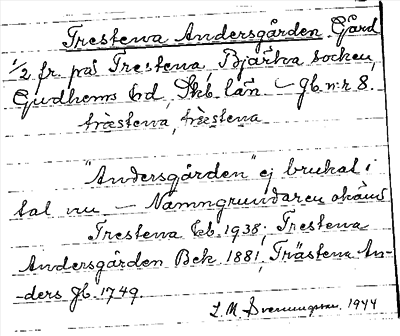 Trestena Andersgården, Gård
1/2 fr. på Trestena, Bjärka socken,
Gudhems hd, Skb. län – Jb. n:r 8.
træstena, træstena
"Andersgården" ej brukat i
tal nu – Namngrundaren okänd
Trestena Eb. 1938, Trestena
Andersgården Bek. 1881, Trästena An-
-ders Jb. 1749.
L. M. Svenungsson 1944